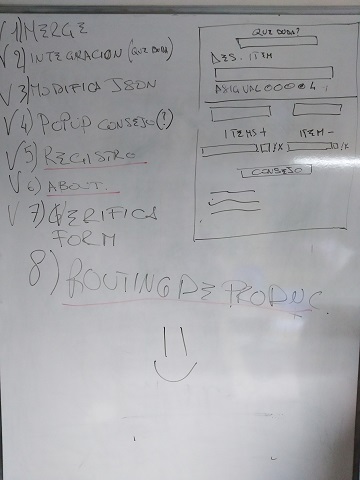 V 1) MERGE
V 2) INTEGRACION (QUE DUDA)
V 3) MODIFICA JSON
V 4) POPUP CONSEJO (?)
V 5) REGISTRO
V 6) ABOUT
V 7) VERIFICA
FORM
8) ROUTING DE PRODUC.
QUE DUDA?
DES. ITEM
ITEMS +
ITEM -
/X
/X
CONSEJO